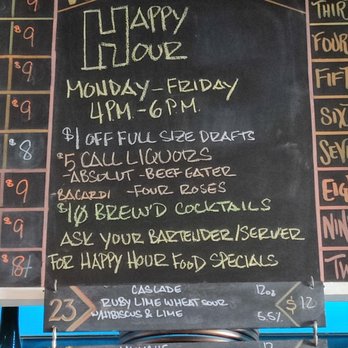 HAPPY
HOUR
MONDAY-FRIDAY
4PM-6PM
$1 OFF FULL SIZE DRAFTS
$5 CALL LIQUORS
-ABSOLUT -BEEFEATER
-BACARDI -FOUR ROSES
$10 BREW'D COCKTAILS
ASK YOUR BARTENDER/SERVER
FOR HAPPY HOUR FOOD SPECIALS
$9
$9
$9
$8
$9
$9
$8
THIR
FOUR
FIFT
SIXT
SEVE
EIG
NIN
TW
23
CASCADE 12oz
RUBY LIME WHEAT SOUR
W/HIBISCUS & LIME 5.5%
$12